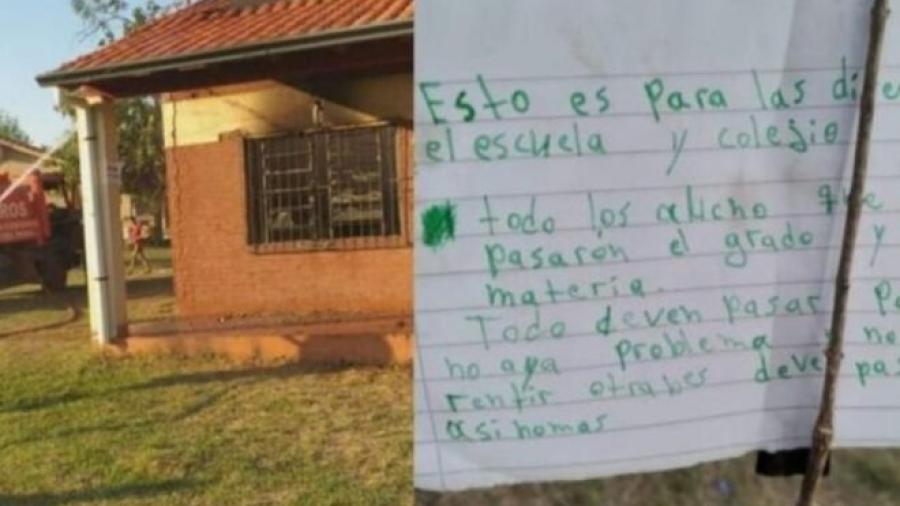 ROS
Esto es para las di
el escuela y colesio
todo los alucho que
pasaron el grado y
materia.
Todo deven pasar Pa
no aya problema no
rentir otrabes deve pas
asi nomas